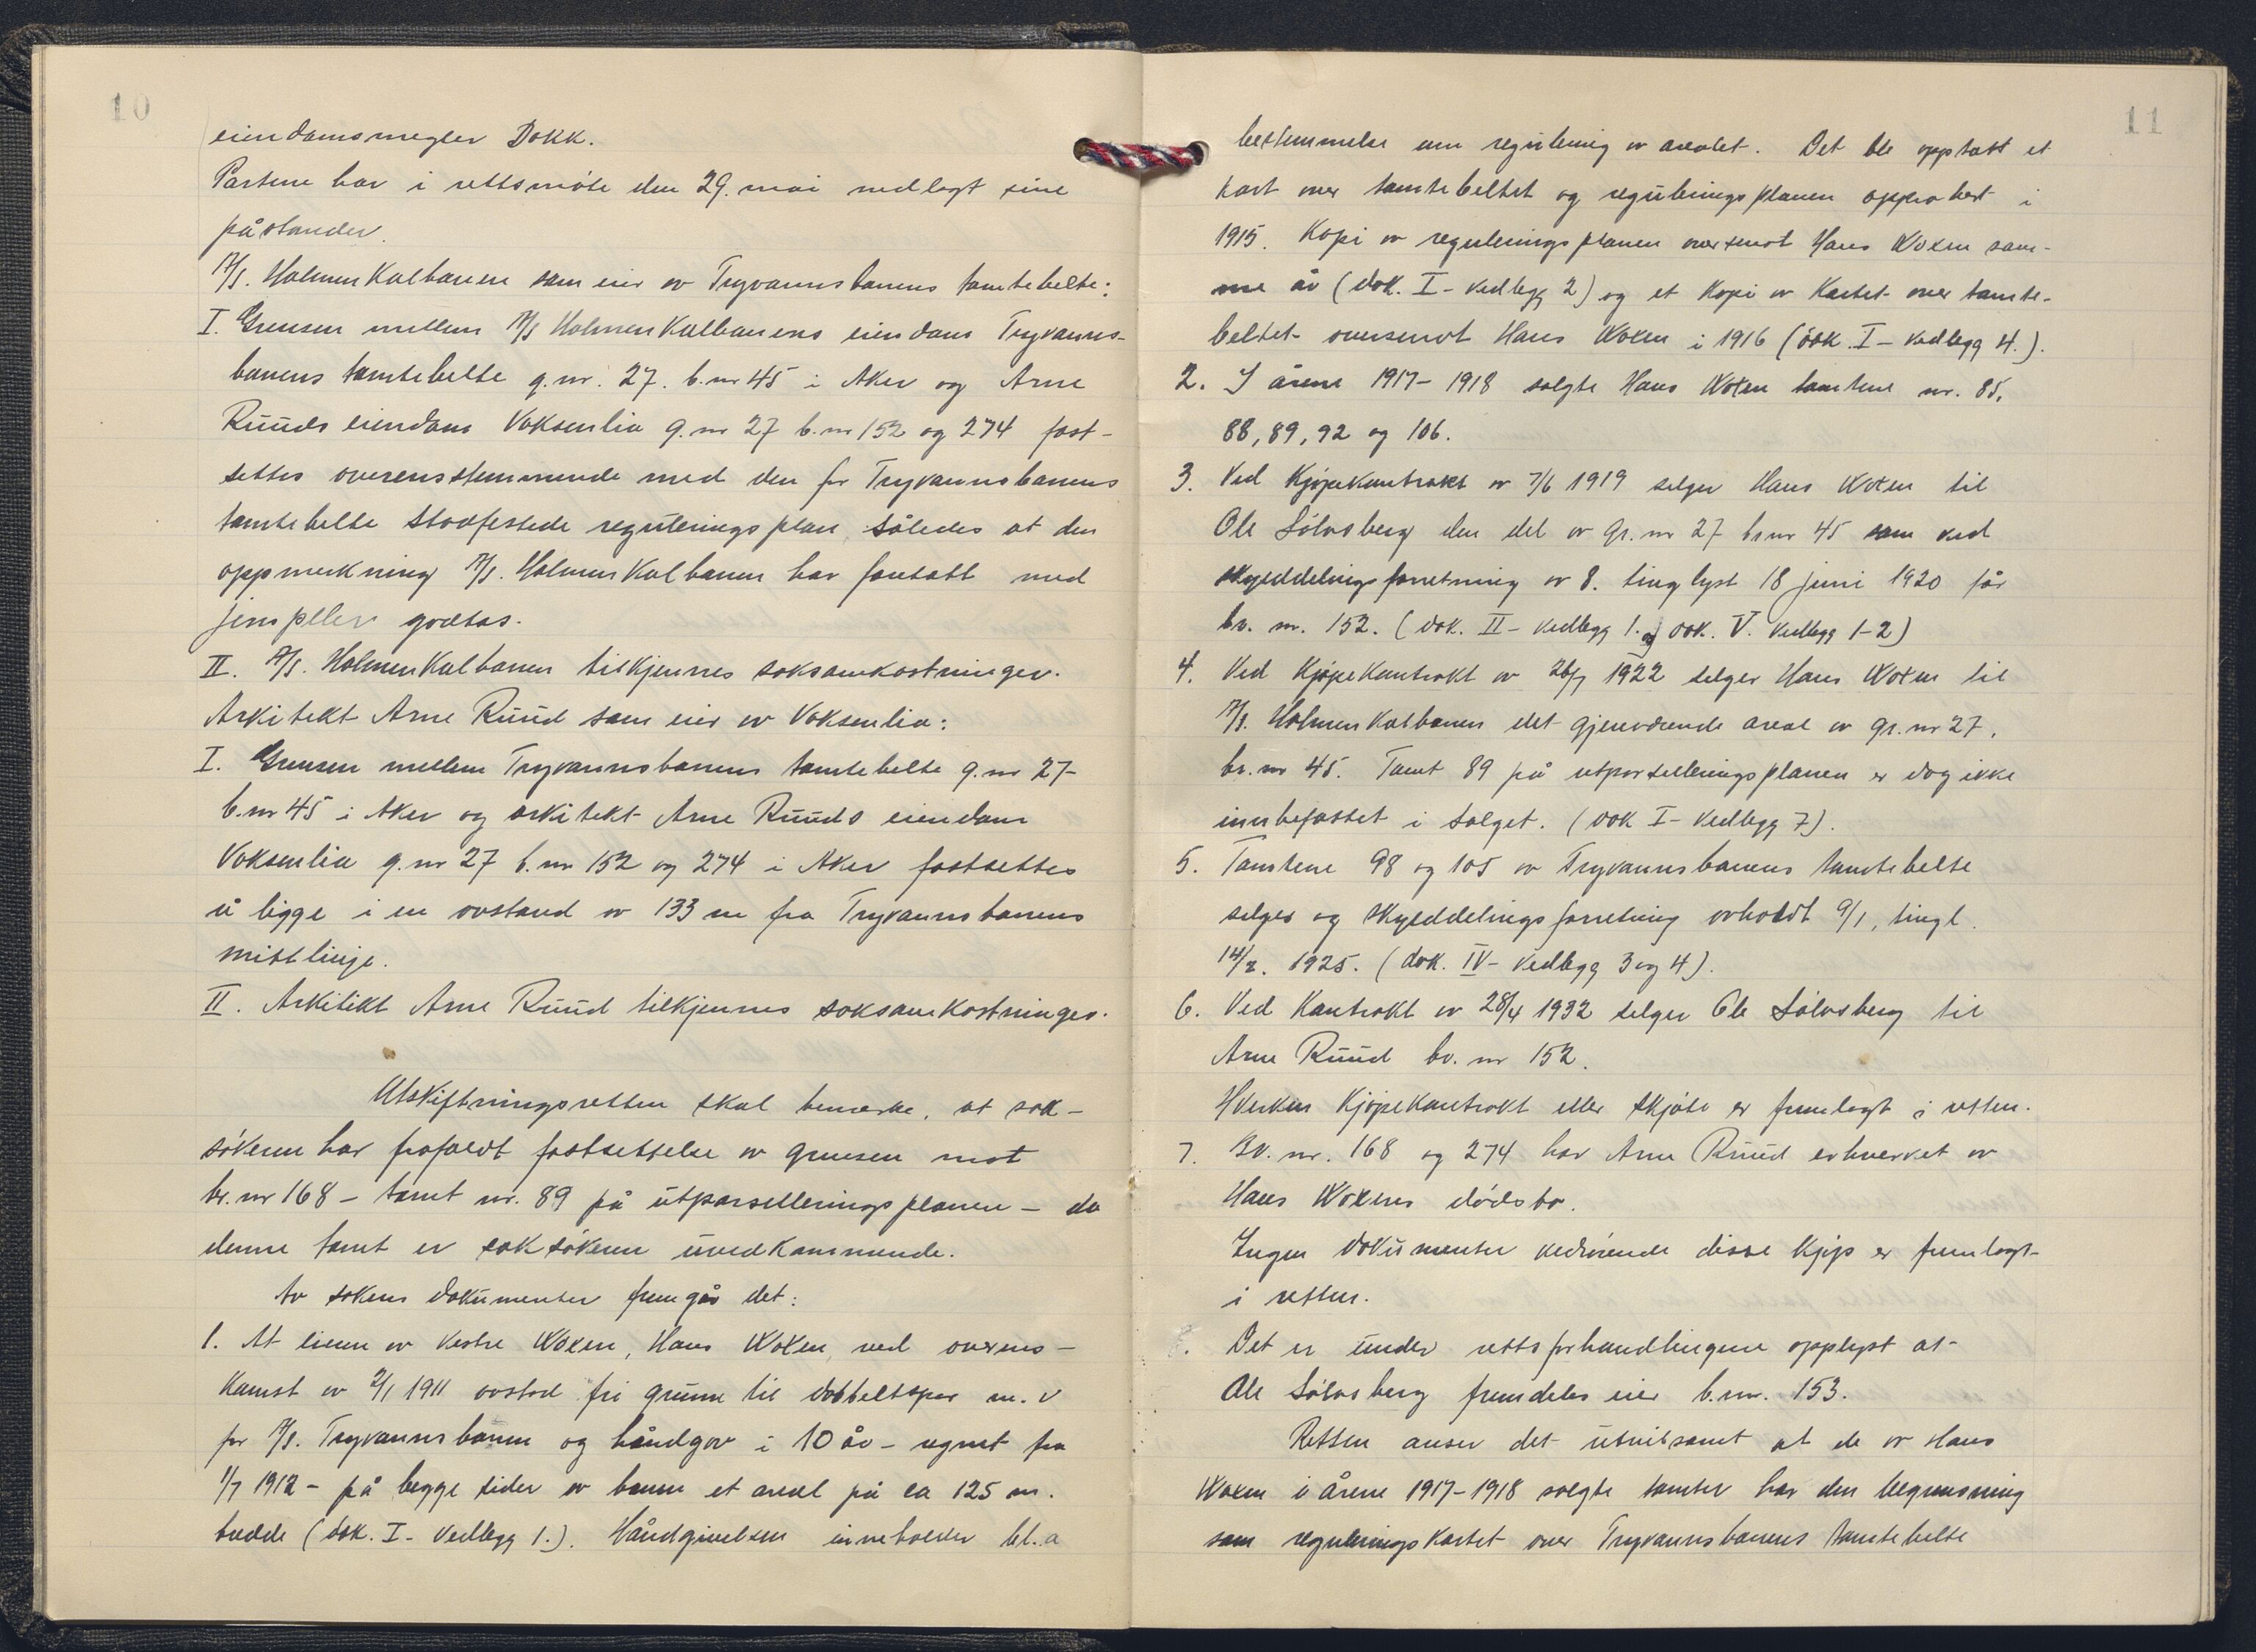 10
eiendomsmegler Dokk.
Partene har i rettsmøte den 29. mai nedlagt sine
påstander.
A/S. Holmenkolbanen som eier av Tryvannsbanens tomtebelte:
I. Grensen mellem A/S Holmenkolbanens eiendom Tryvanns-
banens tomtebelte g.nr. 27. b.nr 45 i Aker og Arne
Ruuds eiendom Voksenlia g.nr 27 b.nr 152 og 274 fast-
settes overensstemmende med den for Tryvannsbanens
tomtebelte stadfestede reguleringsplan, således at den
oppmerkning A/S. Holmenkolbanen har foretatt med
jernpeler godtas.
II. A/S. Holmenkolbanen tilkjennes saksomkostninger.
Arkitekt Arne Ruud som eier av Voksenlia:
I. Grensen mellem Tryvannsbanens tomtebelte g.nr 27
b.nr 45 i Aker og arkitekt Arne Ruuds eiendom
Voksenlia g.nr 27 b.nr 152 og 274 i Aker fastsettes
å ligge i en avstand av 133 m fra Tryvannsbanens
midtlinje.
II. Arkitekt Arne Ruud tilkjennes saksomkostninger.
Utskiftningsretten skal bemerke, at sak-
søkeren har frafaldt fastsettelse av grensen mot
br.nr 168 - tomt nr. 89 på utparselleringsplanen - da
denne tomt er saksøkeren uvedkommende.
Av sakens dokumenter fremgår det:
1. At eieren av Vestre Woxen, Hans Woxen, ved overens-
komst av 2/1 1911 avstod fri grunn til dobbeltspor m. v
for A/S. Tryvannsbanen og håndgav i 10 år - regnet fra
1/7 1912 - på begge sider av banen et areal på ca 125 m.
bredde (dok. I - vedlegg 1.). Håndgivelsen inneholder bl.a
11
bestemmelse om regulering av arealet. Det ble opptatt et
kart over tomtebeltet og reguleringsplanen approbert i
1915. Kopi av reguleringsplanen oversendt Hans Woxen sam-
me år (dok. I - vedlegg 2) og et kopi av kartet over tomte-
beltet oversendt Hans Woxen i 1916 (dok. I - vedlegg 4.).
2. I årene 1917-1918 solgte Hans Woxen tomtene nr. 85,
88, 89, 92 og 106.
3. Ved kjøpekontrakt av 7/6 1919 selger Hans Woxen til
Ole Sølvsberg den del av gr.nr 27 br.nr 45 som ved
skylddelingsforretning av 8. tinglyst 18 juni 1920 får
br. nr. 152. (dok. II - vedlegg 1. og dok. V. vedlegg 1-2)
4. Ved kjøpekontrakt av 26/7 1922 selger Hans Woxen til
A/S. Holmenkolbanen det gjenværende areal av gr.nr 27,
br.nr 45. Tomt 89 på utparselleringsplanen er dog ikke
innbefattet i salget. (dok I - vedlegg 7).
5. Tomtene 98 og 105 av Tryvannsbanens tomtebelte
selges og skylddelingsforretning avholdt 9/1, tingl.
14/2. 1925. (dok. IV - vedlegg 3 og 4).
6. Ved kontrakt av 28/4 1932 selger Ole Sølvsberg til
Arne Ruud br. nr 152.
Hverken kjøpekontrakt eller skjøte er fremlagt i retten.
7. Br. nr. 168 og 274 har Arne Ruud erhvervet av
Hans Woxens dødsbo.
Ingen dokumenter vedrørende disse kjøp er fremlagt
i retten.
8. Det er under rettsforhandlingene opplyst at
Ole Sølvsberg fremdeles eier b.nr. 153.
Retten anser det utvilsomt at de av Hans
Woxen i årene 1917-1918 solgte tomter har den begrensning
som reguleringskartet over Tryvannsbanens tomtebelte